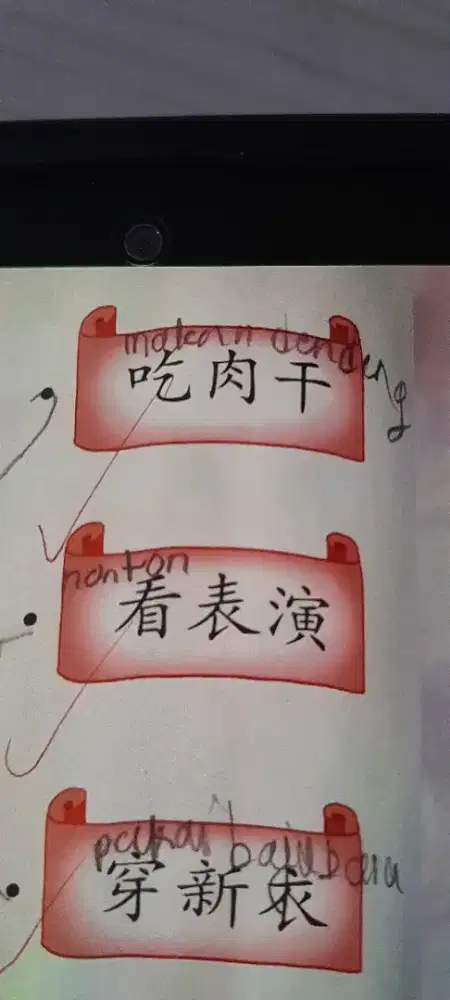 makan dendeng
吃肉干
nonton
看表演
pakai baju baru
穿新衣